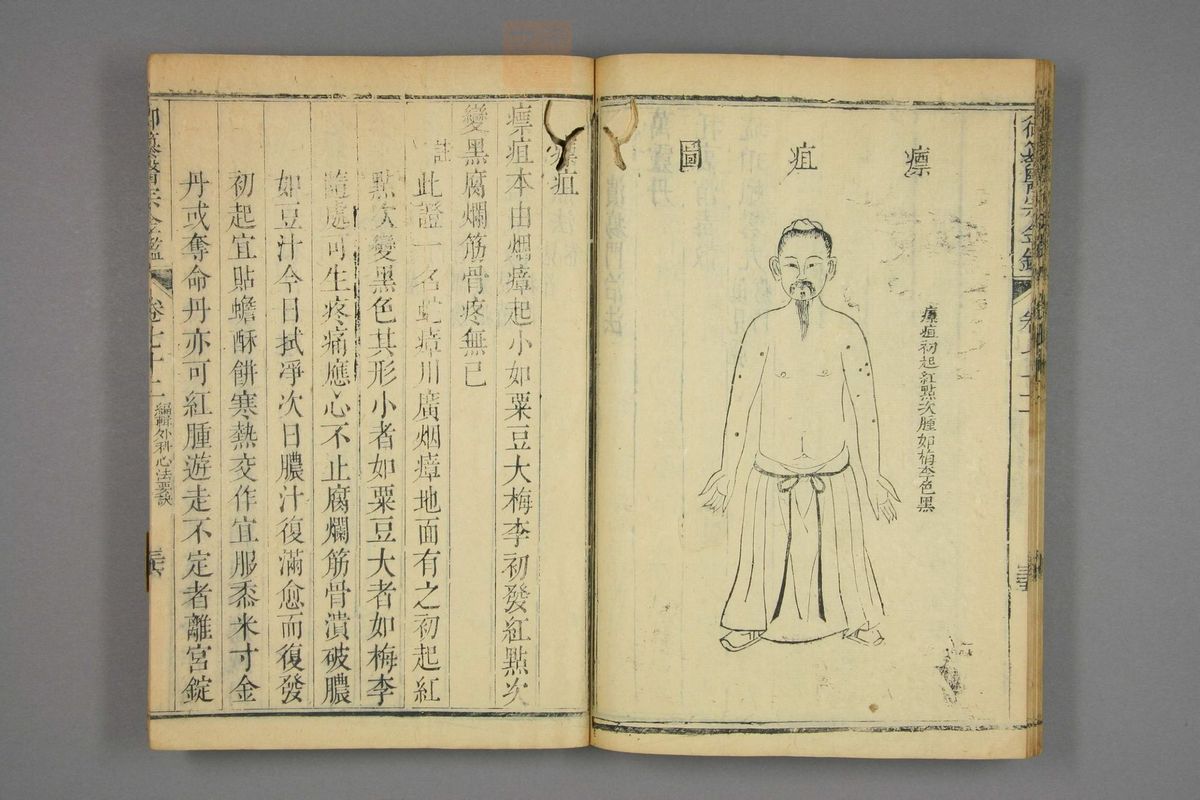 瘭疽圖
瘭疽初起紅點次腫如梅李色黑
瘭疽
瘭疽本由烟瘴起小如粟豆大梅李初發紅點次
變黑腐爛筋骨疼無已
註此證一名蛇瘴川廣烟瘴地面有之初起紅
點次變黑色其形小者如粟豆大者如梅李
隨處可生疼痛應心不止腐爛筋骨潰破膿
如豆汁今日拭凈次日膿汁復滿愈而復發
初起宜貼蟾酥餅寒熱交作宜服黍米寸金
丹或奪命丹亦可紅腫遊走不定者離宮錠
御纂醫宗金鑑
卷七十二
編輯外科心法要訣